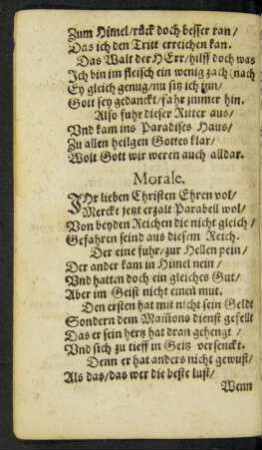 Zum Himel/rück doch besser ran/
Das ich den Tritt erreichen kan.
Das Walt der HErr/hilff doch was
Ich bin im fleisch ein wenig zach (nach
Ey gleich genug/nu sitz ich inn/
Gott sey gedanckt/fahr jmmer hin.
Also fuhr dieser Ritter aus/
Vnd kam ins Paradises Haus/
Zu allen heilgen Gottes klar/
Wolt Gott wir weren auch alldar.
Morale.
IHr lieben Christen Ehren vol/
Merckt jetzt erzalt Parabell wol/
Von beyden Reichen die nicht gleich/
Gefahren seind aus diesem Reich.
Der eine fuhr/zur Hellen pein/
Der ander kam in Himel nein/
Vnd hatten doch ein gleiches Gut/
Aber im Geist nicht einen mut.
Den ersten hat mit nicht sein Geldt
Sondern dem Mam̃ons dienst gefelt
Das er sein hertz hat dran gehengt/
Vnd sich zu tieff in Geitz versenckt.
Denn er hat anders nicht gewust/
Als das/das wer die beste lust/
Wenn